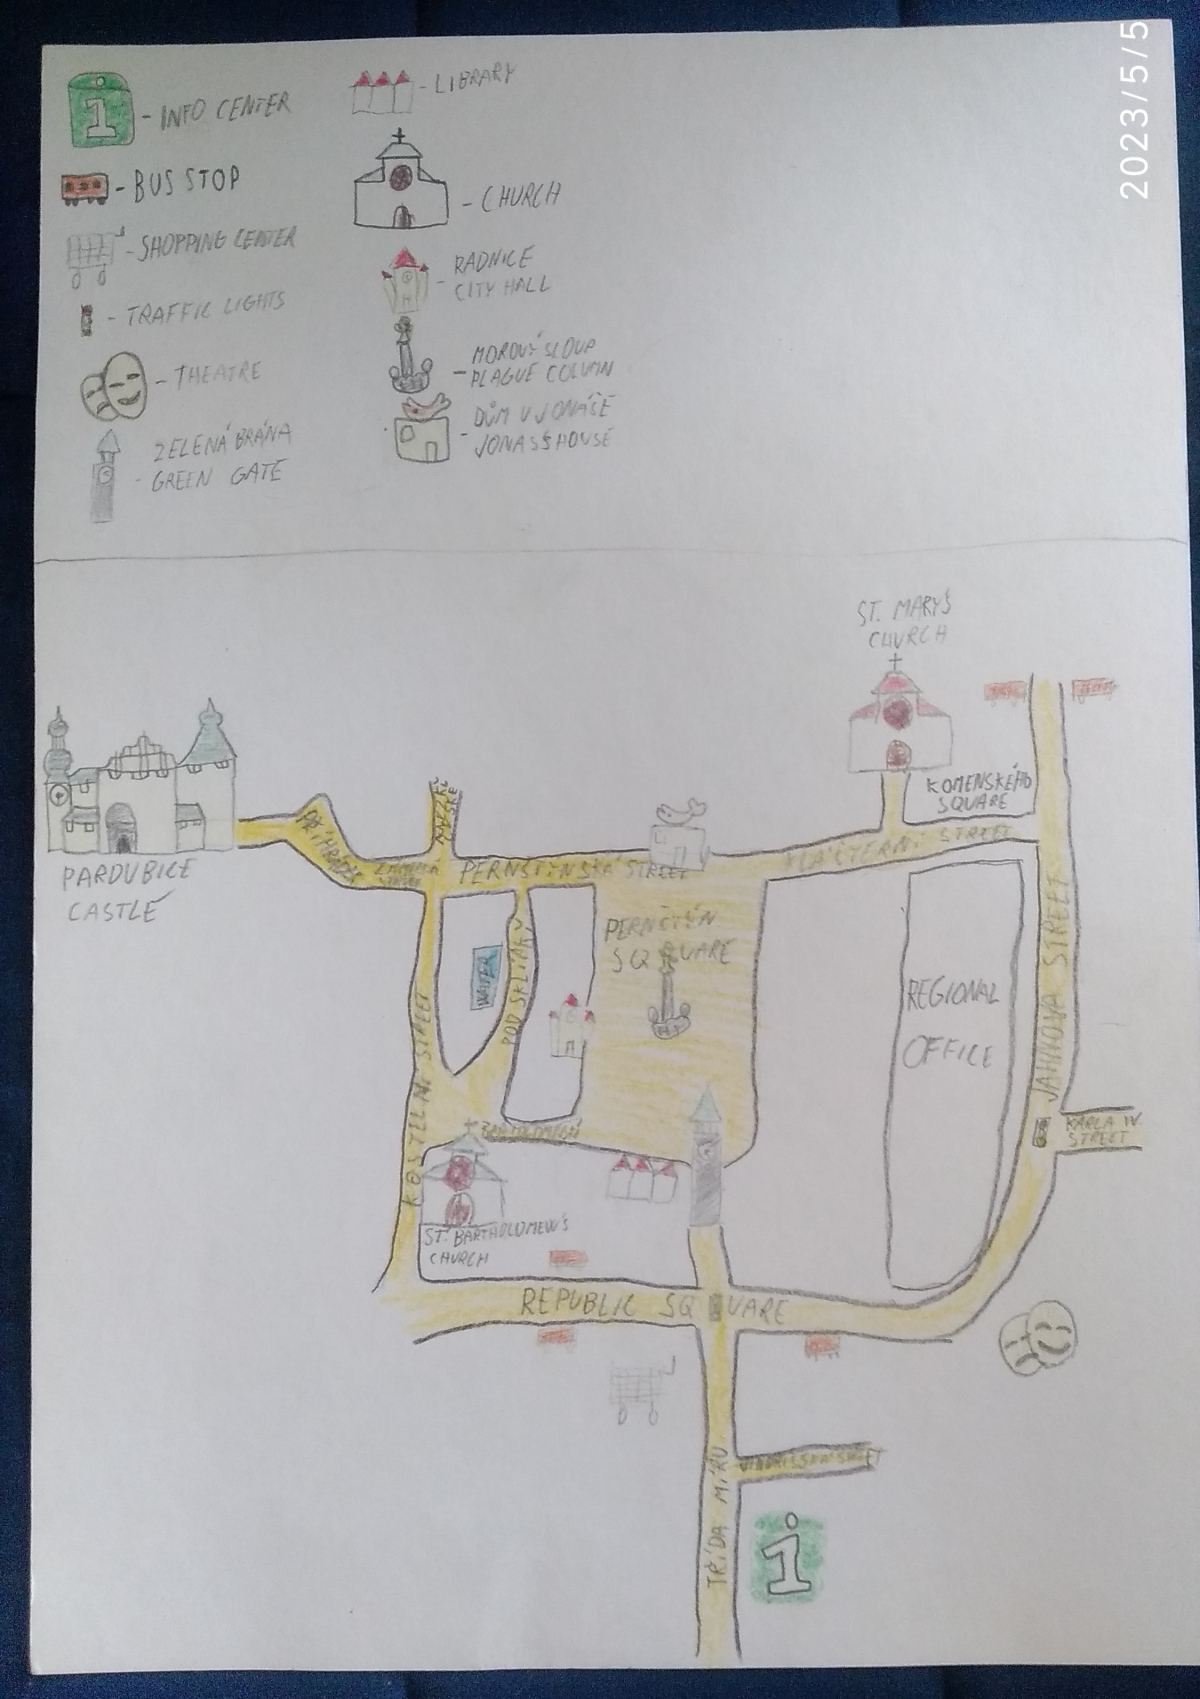 2023/5/5
1 - INFO CENTER
- BUS STOP
- SHOPPING CENTER
- TRAFFIC LIGHTS
- THEATRE
ZELENÁ BRÁNA
- GREEN GATE
- LIBRARY
- CHURCH
RADNICE
- CITY HALL
MOROVÝ SLOUP
- PLAGUE COLUMN
DŮM U JONÁŠE
- JONAS'S HOUSE
ST. MARY'S
CHURCH
KOMENSKÉHO
SQUARE
PARDUBICE
CASTLE
PŘIHRÁDEK
PERNŠTÝNSKÁ STREET
KLÁŠTERNÍ STREET
PERNŠTÝN
SQUARE
WATER
POD SKLÍPKY
KOSTELNÍ STREET
REGIONAL
OFFICE
JAHNOVA STREET
KARLA IV.
STREET
ST. BARTHOLOMEW'S
CHURCH
REPUBLIC SQUARE
TŘÍDA MÍRU
i